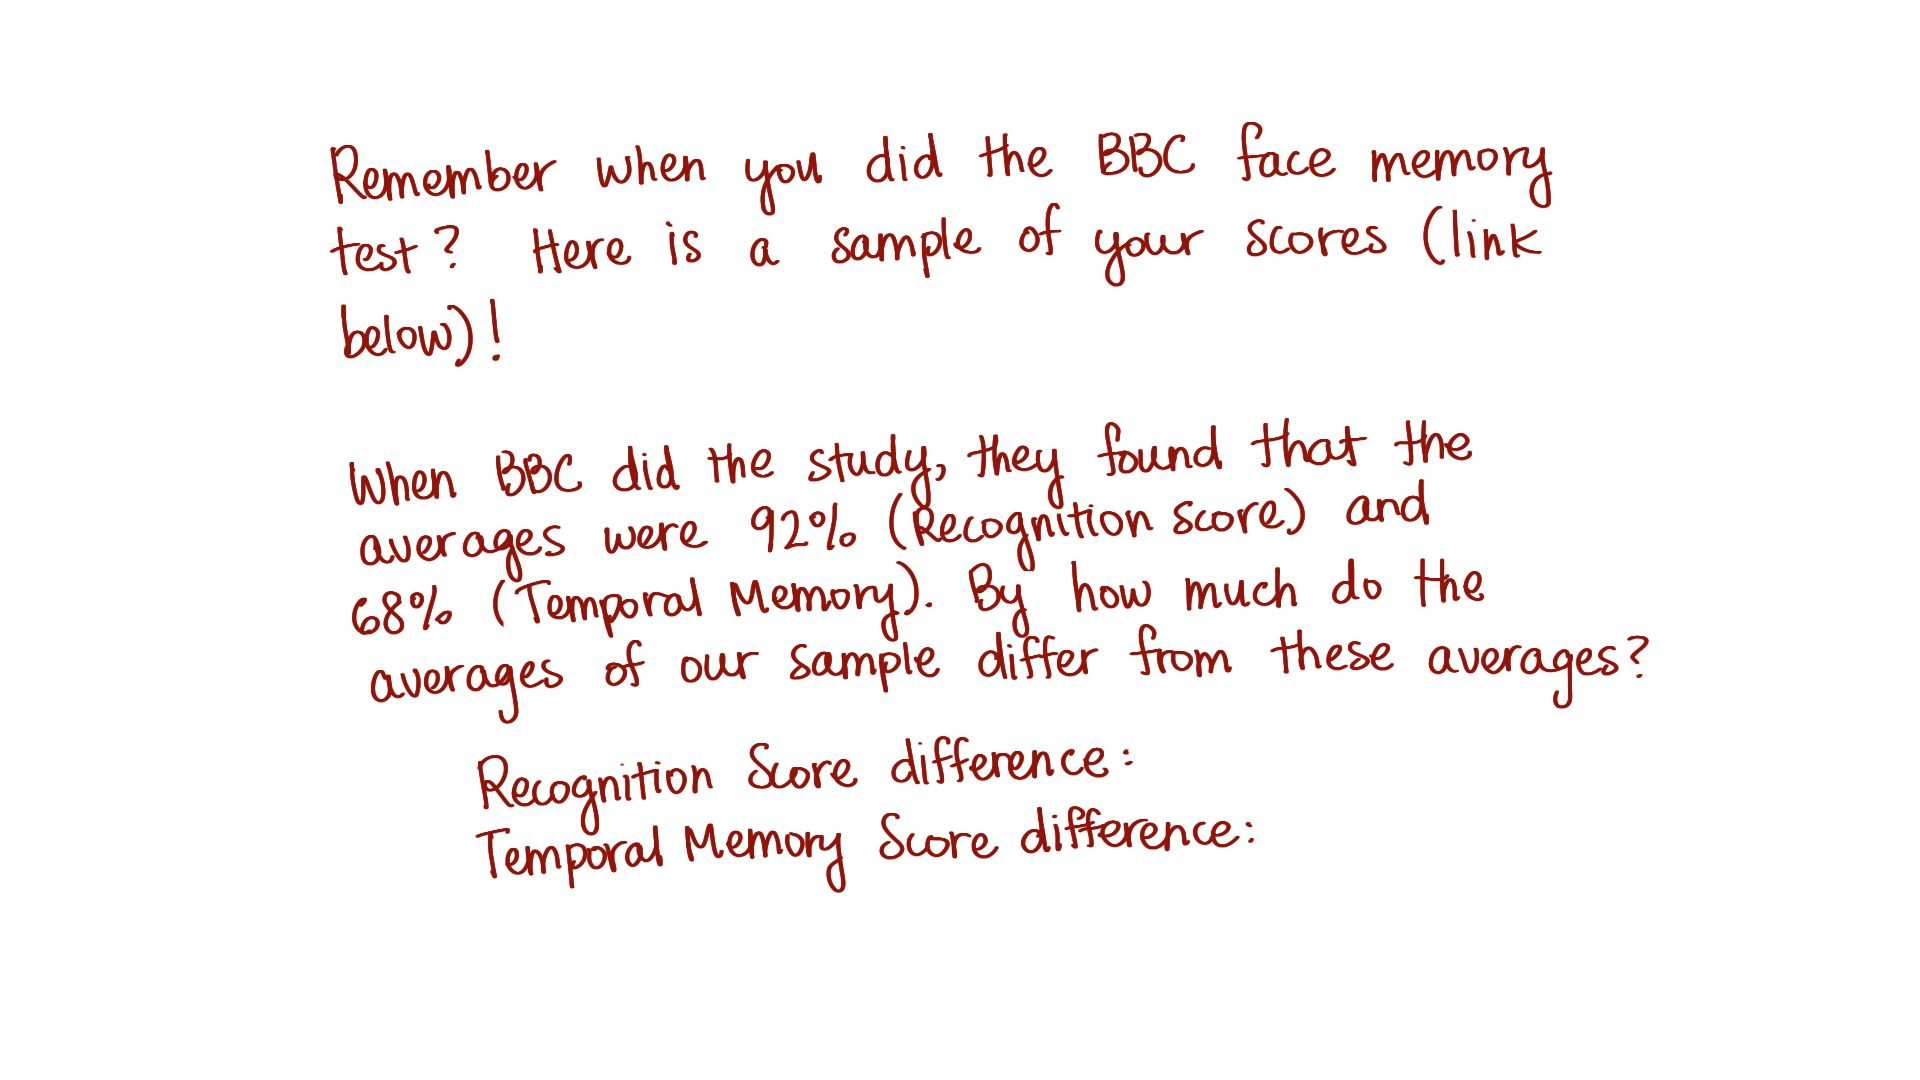 Remember when you did the BBC face memory
test? Here is a sample of your scores (link
below)!
When BBC did the study, they found that the
averages were 92% (Recognition score) and
68% (Temporal Memory). By how much do the
averages of our sample differ from these averages?
Recognition Score difference:
Temporal Memory Score difference: